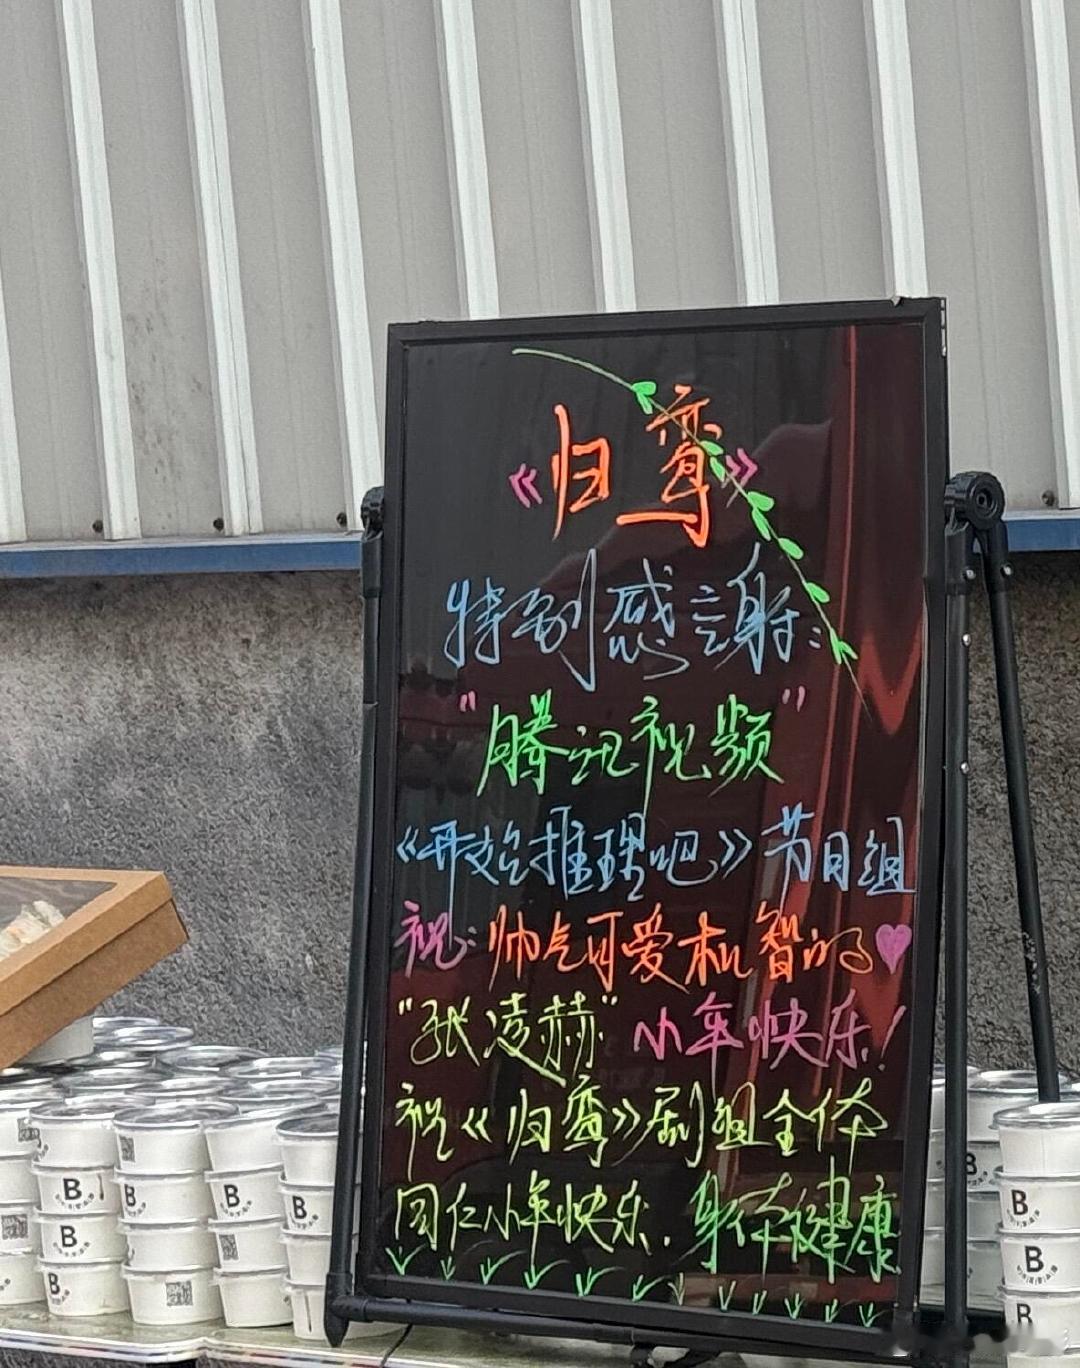 《归鸾》
特别感謝：
"腾讯视频"
《开始推理吧》节目组
祝：帅气可爱机智的
"张凌赫"小年快乐！
祝《归鸾》剧组全体
同仁小年快乐．身体健康
B
B
B
B
B
B
B
B
B
B